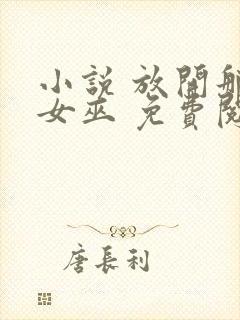 小說 放開
女巫 免費
唐長利